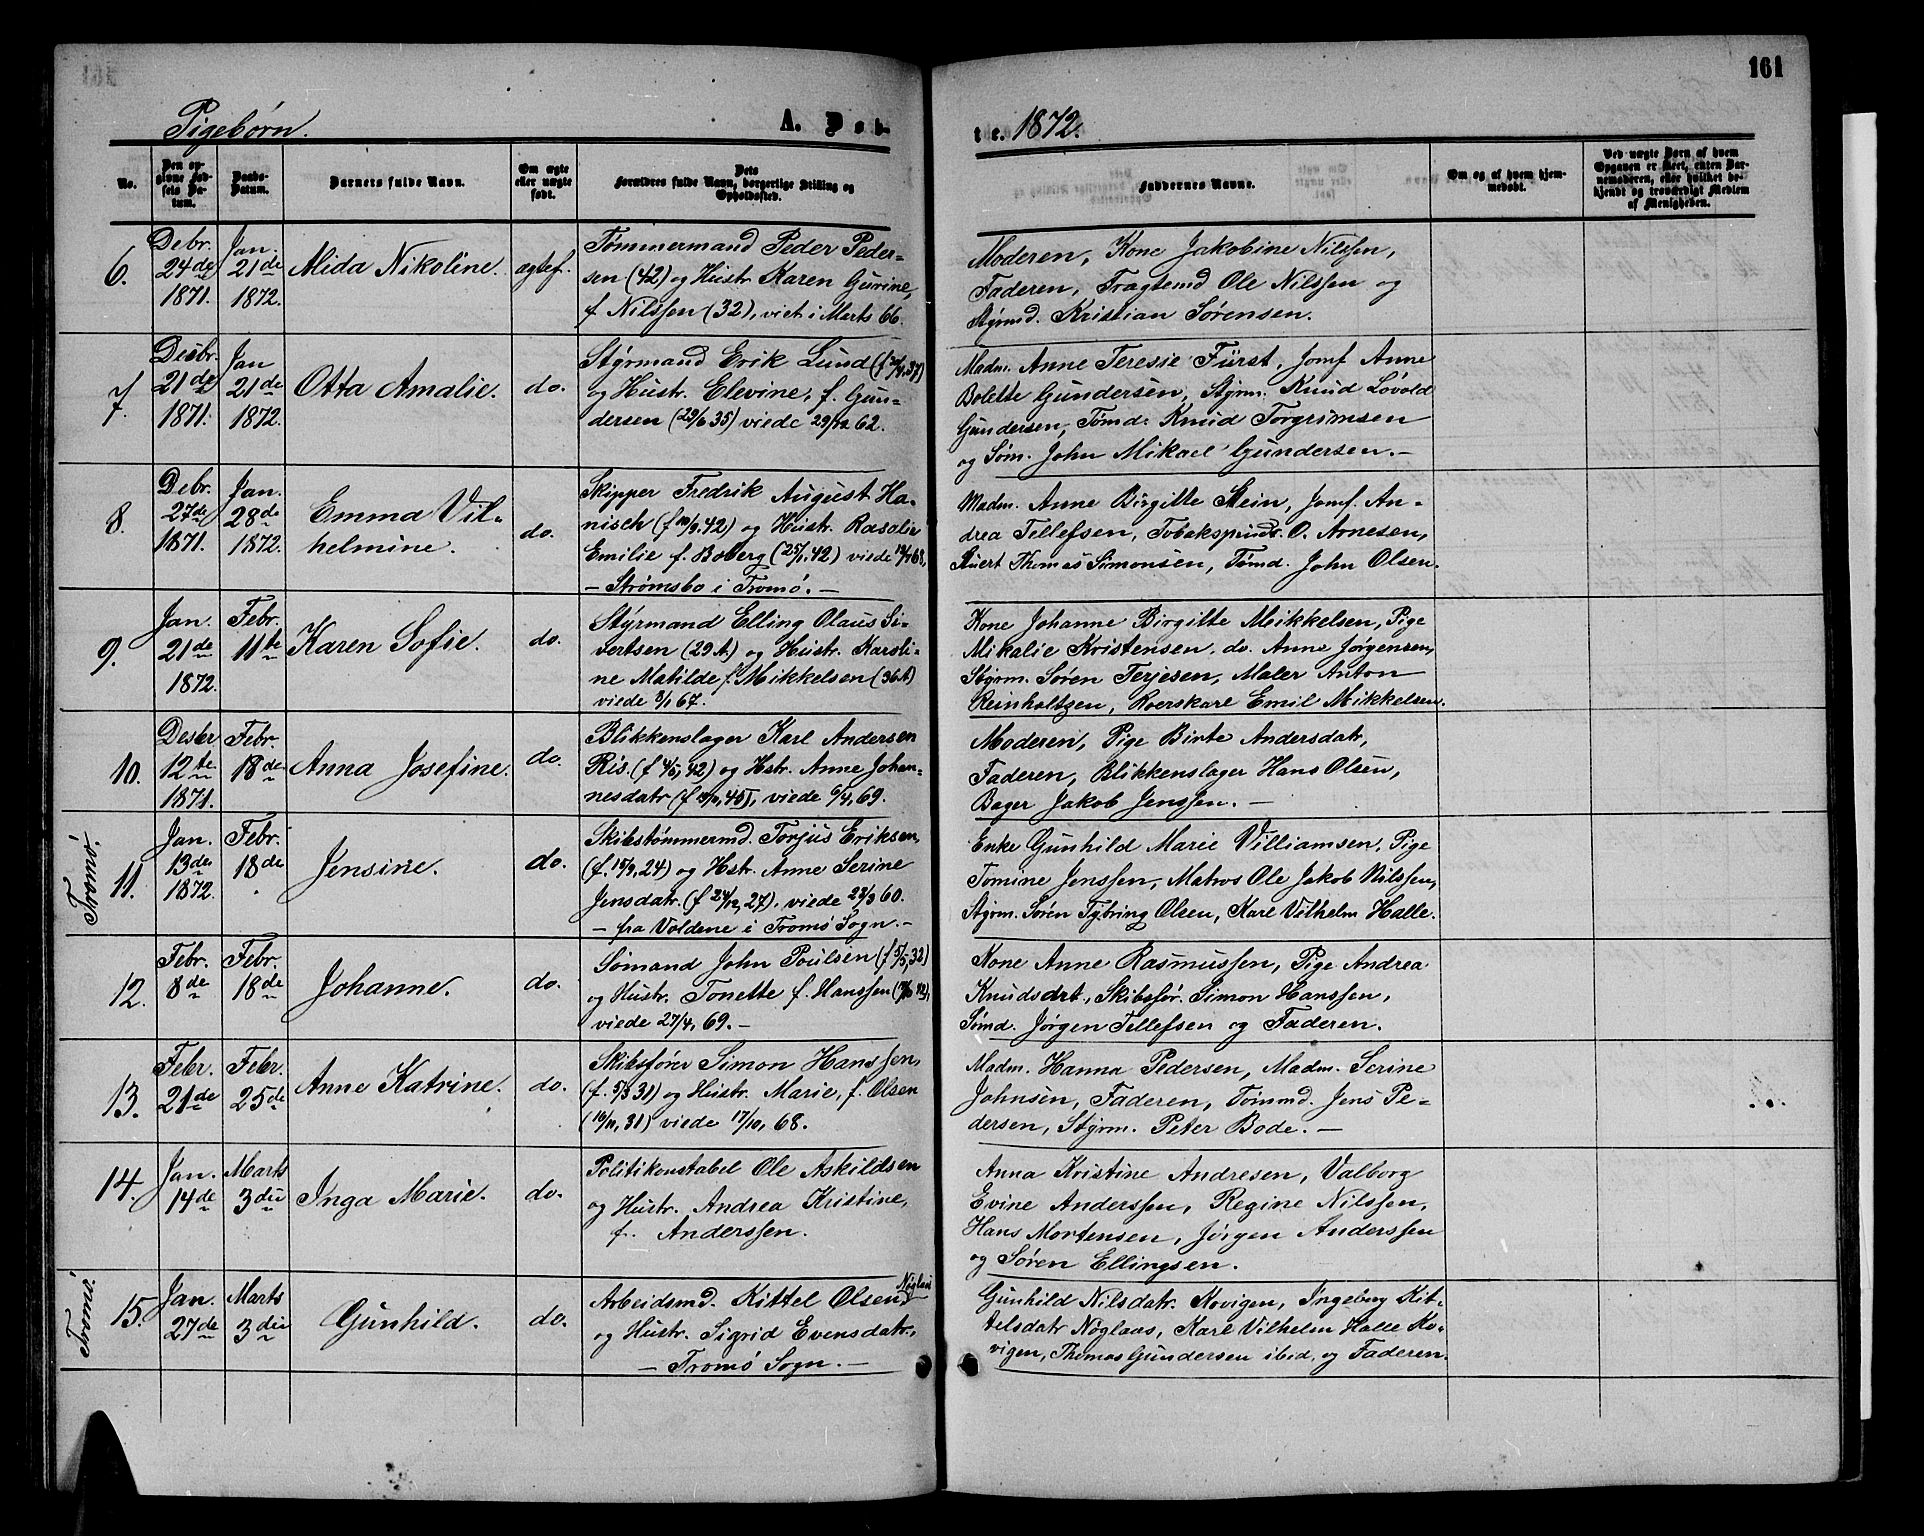 161
Pigebørn.
A. Døb-
te. 1872.
No.
Den op-
givne Fød-
sels Da-
tum.
Daabs-
Datum.
Barnets fulde Navn.
Om ægte
eller uægte
født.
Dets
Forældres fulde Navn, borgerlige Stilling og
Opholdssted.
Faddernes Navne.
Om og af hvem hjem-
medøbt.
Ved uægte Børn af hvem
Opgaven er skeet, enten Bar-
nemoderen, eller hvilket be-
kjendt og troværdigt Medlem
af Menigheden.
6.
Debr.
24de
1871.
Jan.
21de
1872.
Alida Nikoline.
ægtef.
Tømmermand Peder Peder-
sen (42) og Hustr. Karen Gurine,
f. Nilssen (32), viet i Marts 66.
Moderen, Kone Jakobine Nilssen,
Faderen, Fragtemd Ole Nilssen og
Styrmd. Kristian Sørensen.
7.
Desbr.
21de
1871.
Jan
21de
1872.
Otta Amalie.
do.
Styrmand Erik Lund
og Hustr. Elevine, f. Gun-
dersen (29/6 35) viede 29/12 62.
Madm. Anne Teresie Fürst, Jomf. Anne
Bolette Gundersen, Styrm. Knud Løvold
Gundersen, Tømd. Knud Torgrimsen
og Søm. John Mikael Gundersen.-
8.
Debr.
27de
1871.
Jan.
28de
1872.
Emma Vil-
helmine.
do.
Skipper Fredrik August Ha-
nisch og Hustr. Rosalie
Emilie f. Boberg (25/1, 42) viede
- Strømsbo i Tromø. -
Madm. Anne Birgitte Stein, Jomf. An-
drea Tellefsen, Tobakspind. O. Arnesen,
Stuert Thomas Simonsen, Tømd. John Olsen.
9.
Jan.
21de
1872.
Febr.
11te
Karen Sofie.
do.
Styrmand Elling Olaus Si-
vertsen (29 A.) og Hustr. Karoli-
ne Matilde f. Mikkelsen (36 A)
viede 3/1 67.
Kone Johanne Birgitte Mikkelsen, Pige
Mikalie Kristensen, do. Anne Jørgensen,
Styrm. Søren Terjesen, Maler Anton
Reinholtzen, Roerskarl Emil Mikkelsen.
10.
Desbr
12te
1871.
Febr.
18de
Anna Josefine.
do.
Blikkenslager Karl Andersen
Ris. (f 4/5, 42) og Hstr. Anne Johan-
nesdatr viede 6/4, 69.
Moderen, Pige Birte Andersdatr,
Faderen, Blikkenslager Hans Olsen,
Bager Jakob Jenssen. -
Tromø.
11.
Jan.
13de
1872.
Febr.
18de
Jensine.
do.
Skibstømmermd. Torjus Eriksen,
(f. 15/9, 24) og Hstr. Anne Serine
Jensdatr. (f 24/12, 27), viede 23/9 60.
- fra Voldene i Tromø Sogn. -
Enke Gunhild Marie Villiamsen, Pige
Tomine Jenssen, Matros Ole Jakob Nilssen,
Styrm. Søren Tybring Olsen, Karl Vilhelm Halle.
12.
Febr.
8de
Febr.
18de
Johanne.
do.
Sømand John Poulsen (f 5/5, 32)
og Hustr. Tonette f. Hanssen
viede 27/4, 69. -
Kone Anne Rasmussen, Pige Andrea
Knudsdrt., Skibsfør. Simon Hanssen,
Sømd. Jørgen Tellefsen og Faderen.
13.
Febr.
21de
Febr.
25de
Anne Katrine.
do.
Skibsfører Simon Hanssen,
(f. 5/3 31) og Hustr. Marie, f. Olsen
(19/11, 31) viede 17/10, 68.
Madm. Hanna Pedersen, Madm. Serine
Johnsen, Faderen, Tømmd. Jens Pe-
dersen, Styrm. Peter Bode. -
14.
Jan.
14de
Marts
3die
Inga Marie.
do.
Politikonstabel Ole Askildsen
og Hustr. Andrea Kristine,
f. Anderssen.
Anna Kristine Andresen, Valborg
Evine Anderssen, Regine Nilssen,
Hans Mortensen, Jørgen Anderssen
og Søren Ellingsen.
Tromø.
15.
Jan.
27de
Marts
3die
Gunhild.
do.
Arbeidsmd. Kittel Olsen Nøglas
og Hustr. Sigrid Evensdatr.,
- Tromø Sogn. -
Gunhild Nilsdatr. Kovigen, Ingeborg Kit-
telsdatr Nøglaas, Karl Vilhelm Halle Ko-
vigen, Thomas Gundersen ibid. og Faderen.